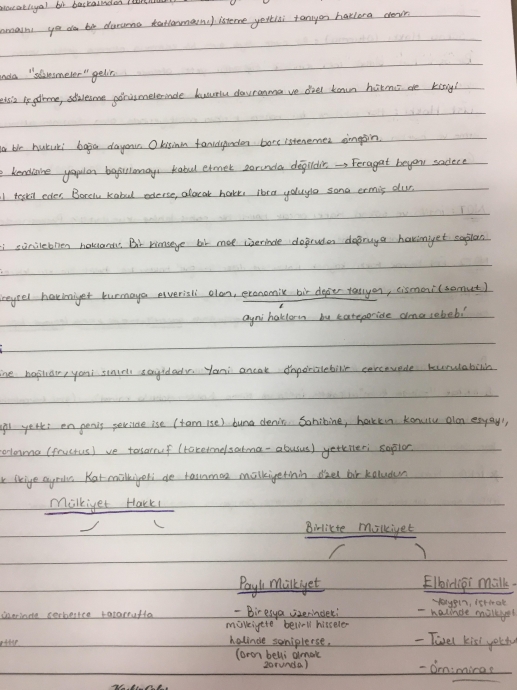 (alacaklıya) bir başkasından
ya da bir duruma katlanmasını) isteme yetkisi tanıyan haklara denir.
"sözleşmeler" gelir.
iş görme, sözleşme görüşmelerinde kusurlu davranma ve özel konun hükmü de kişiyi
bir hukuki bağa dayanır. O kişinin tanıdığından borç istenemez örneğin.
kendisine yapılan bağışlamayı kabul etmek zorunda değildir → Feragat beyanı sadece
teşkil eder. Borçlu kabul ederse, alacak hakkı ibra yoluyla sona ermiş olur.
sürülebilen haklardır. Bir kimseye bir mal üzerinde doğrudan doğruya hakimiyet sağlar.
hakimiyet kurmaya elverişli olan, ekonomik bir değer taşıyan, cismani (somut)
ayni hakların bu kategoride olma sebebi
bağlıdır, yani sınırlı sayıdadır. Yani ancak öngörülebilir çerçevede kurulabilir.
yetki en geniş şekilde ise (tam ise) buna denir. Sahibine, hakkın konusu olan eşyayı,
(fructus) ve tasarruf (tüketme/satma - abusus) yetkileri sağlar.
ikiye ayrılır. Kat mülkiyeti de taşınmaz mülkiyetinin özel bir koludur.
Mülkiyet Hakkı
Birlikte Mülkiyet
Paylı Mülkiyet
Elbirliği Mülk-
- Bir eşya üzerindeki
mülkiyete belirli hisseler
halinde sahiplerse.
(oran belli olmak
zorunda)
iştirak
- halinde mülkiyet
- Tüzel kişi
- Ör: miras
üzerinde serbestçe tasarrufta